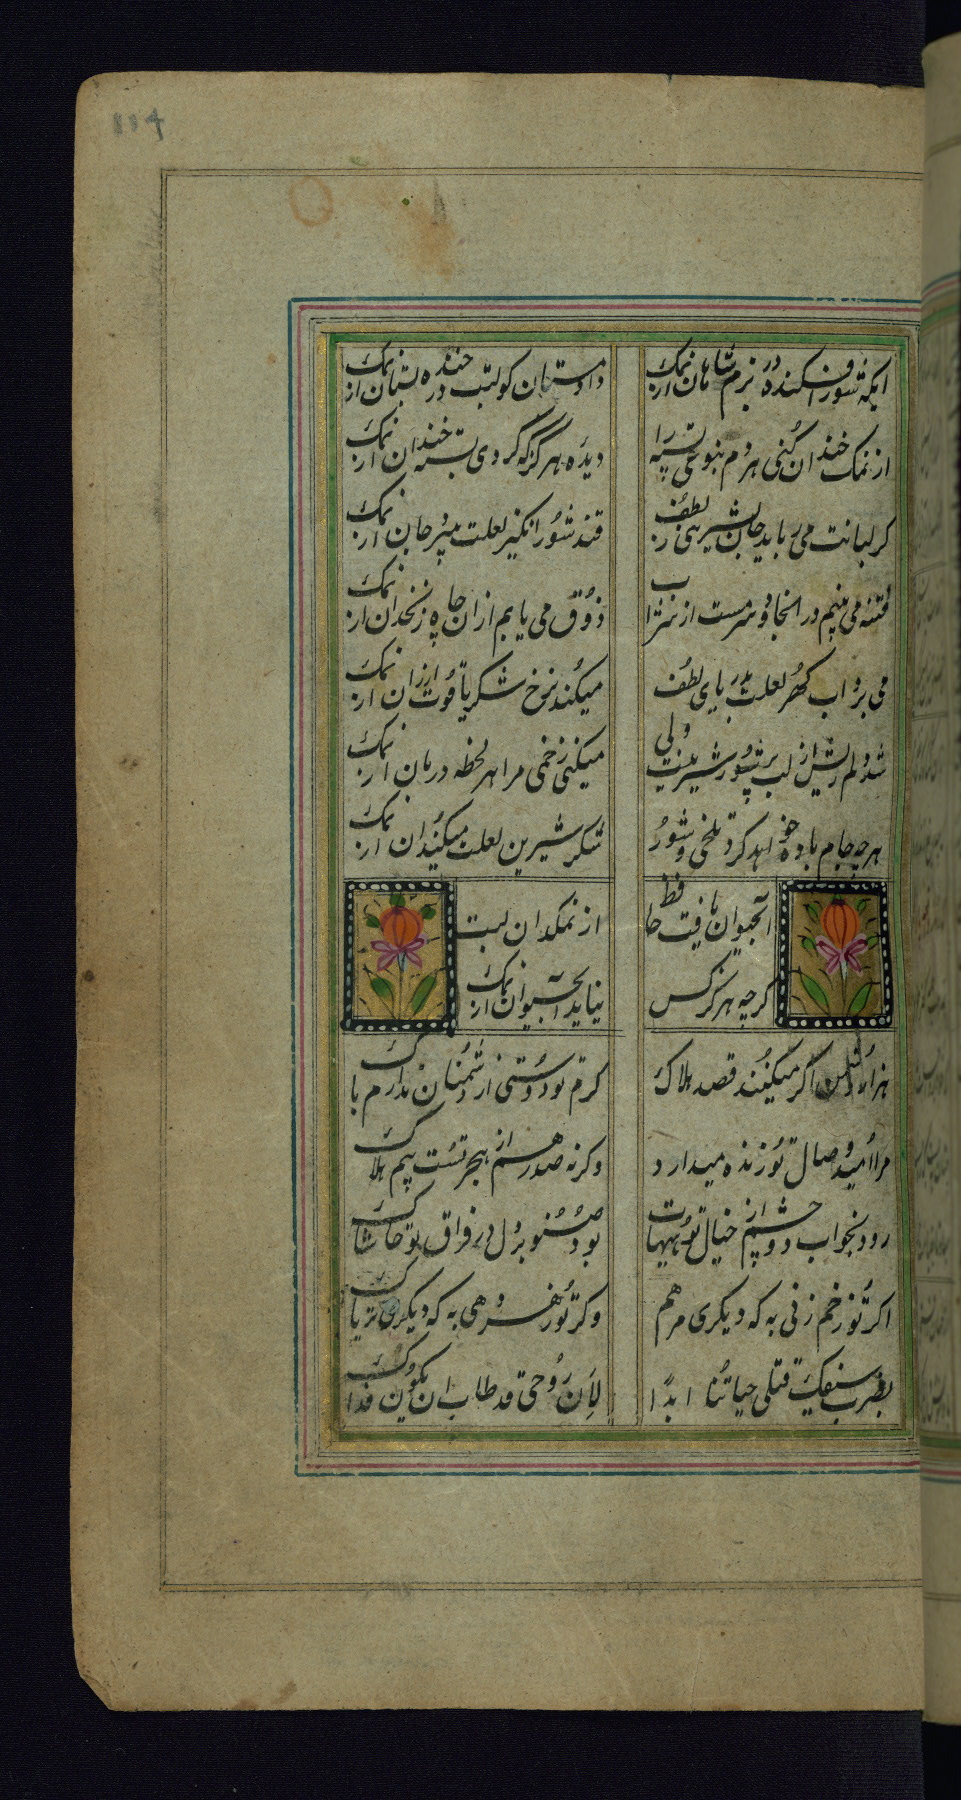 114
ایکه شور افکنده در بزم شاهان از نمک
داد مستان کو لبت در خنده پستان از نمک
از نمک خندان کنی هر دم بنوعی پسته را
دیده هرگز که کردی پسته خندان از نمک
کر لبانت می رباید جان بشیرینی ز لطف
قند شور انگیز لعلت میبرد جان از نمک
فتنه می بینم در انجا و سرمست از شراب
ذوق می یابم از ان چاه زنخدان از نمک
می برد اب کهر لعلت بدریای لطف
میکند نرخ شکر یاقوت ارزان از نمک
شد دلم ریش از لب پر شور شیرینت ولی
میکنی زخمی مرا هر لحظه درمان از نمک
هر چه جام باده خواهد کرد تلخی و شور
شکر شیرین لعلت میکند ان از نمک
از نمکدان لبت
آبحیوان یافت حافظ
کرچه هرکز کس
نیابد آبحیوان از نمک
هزار دشمن اکر میکنند قصد هلاک
کرم تو دوستی از دشمنان ندارم باک
مرا امید وصال تو زنده میدارد
وکرنه صد رهم از هجر تست بیم هلاک
رود بخواب دو چشم از خیال تو هیهات
بود صبور دل در فراق تو حاشاک
اکر تو زخم زنی به که دیکری مرهم
وکر تو زهر دهی به که دیکری تریاک
بضرب سیفک قتلی حیاتنا ابدا
لأن روحی قد طاب ان یکون فداک